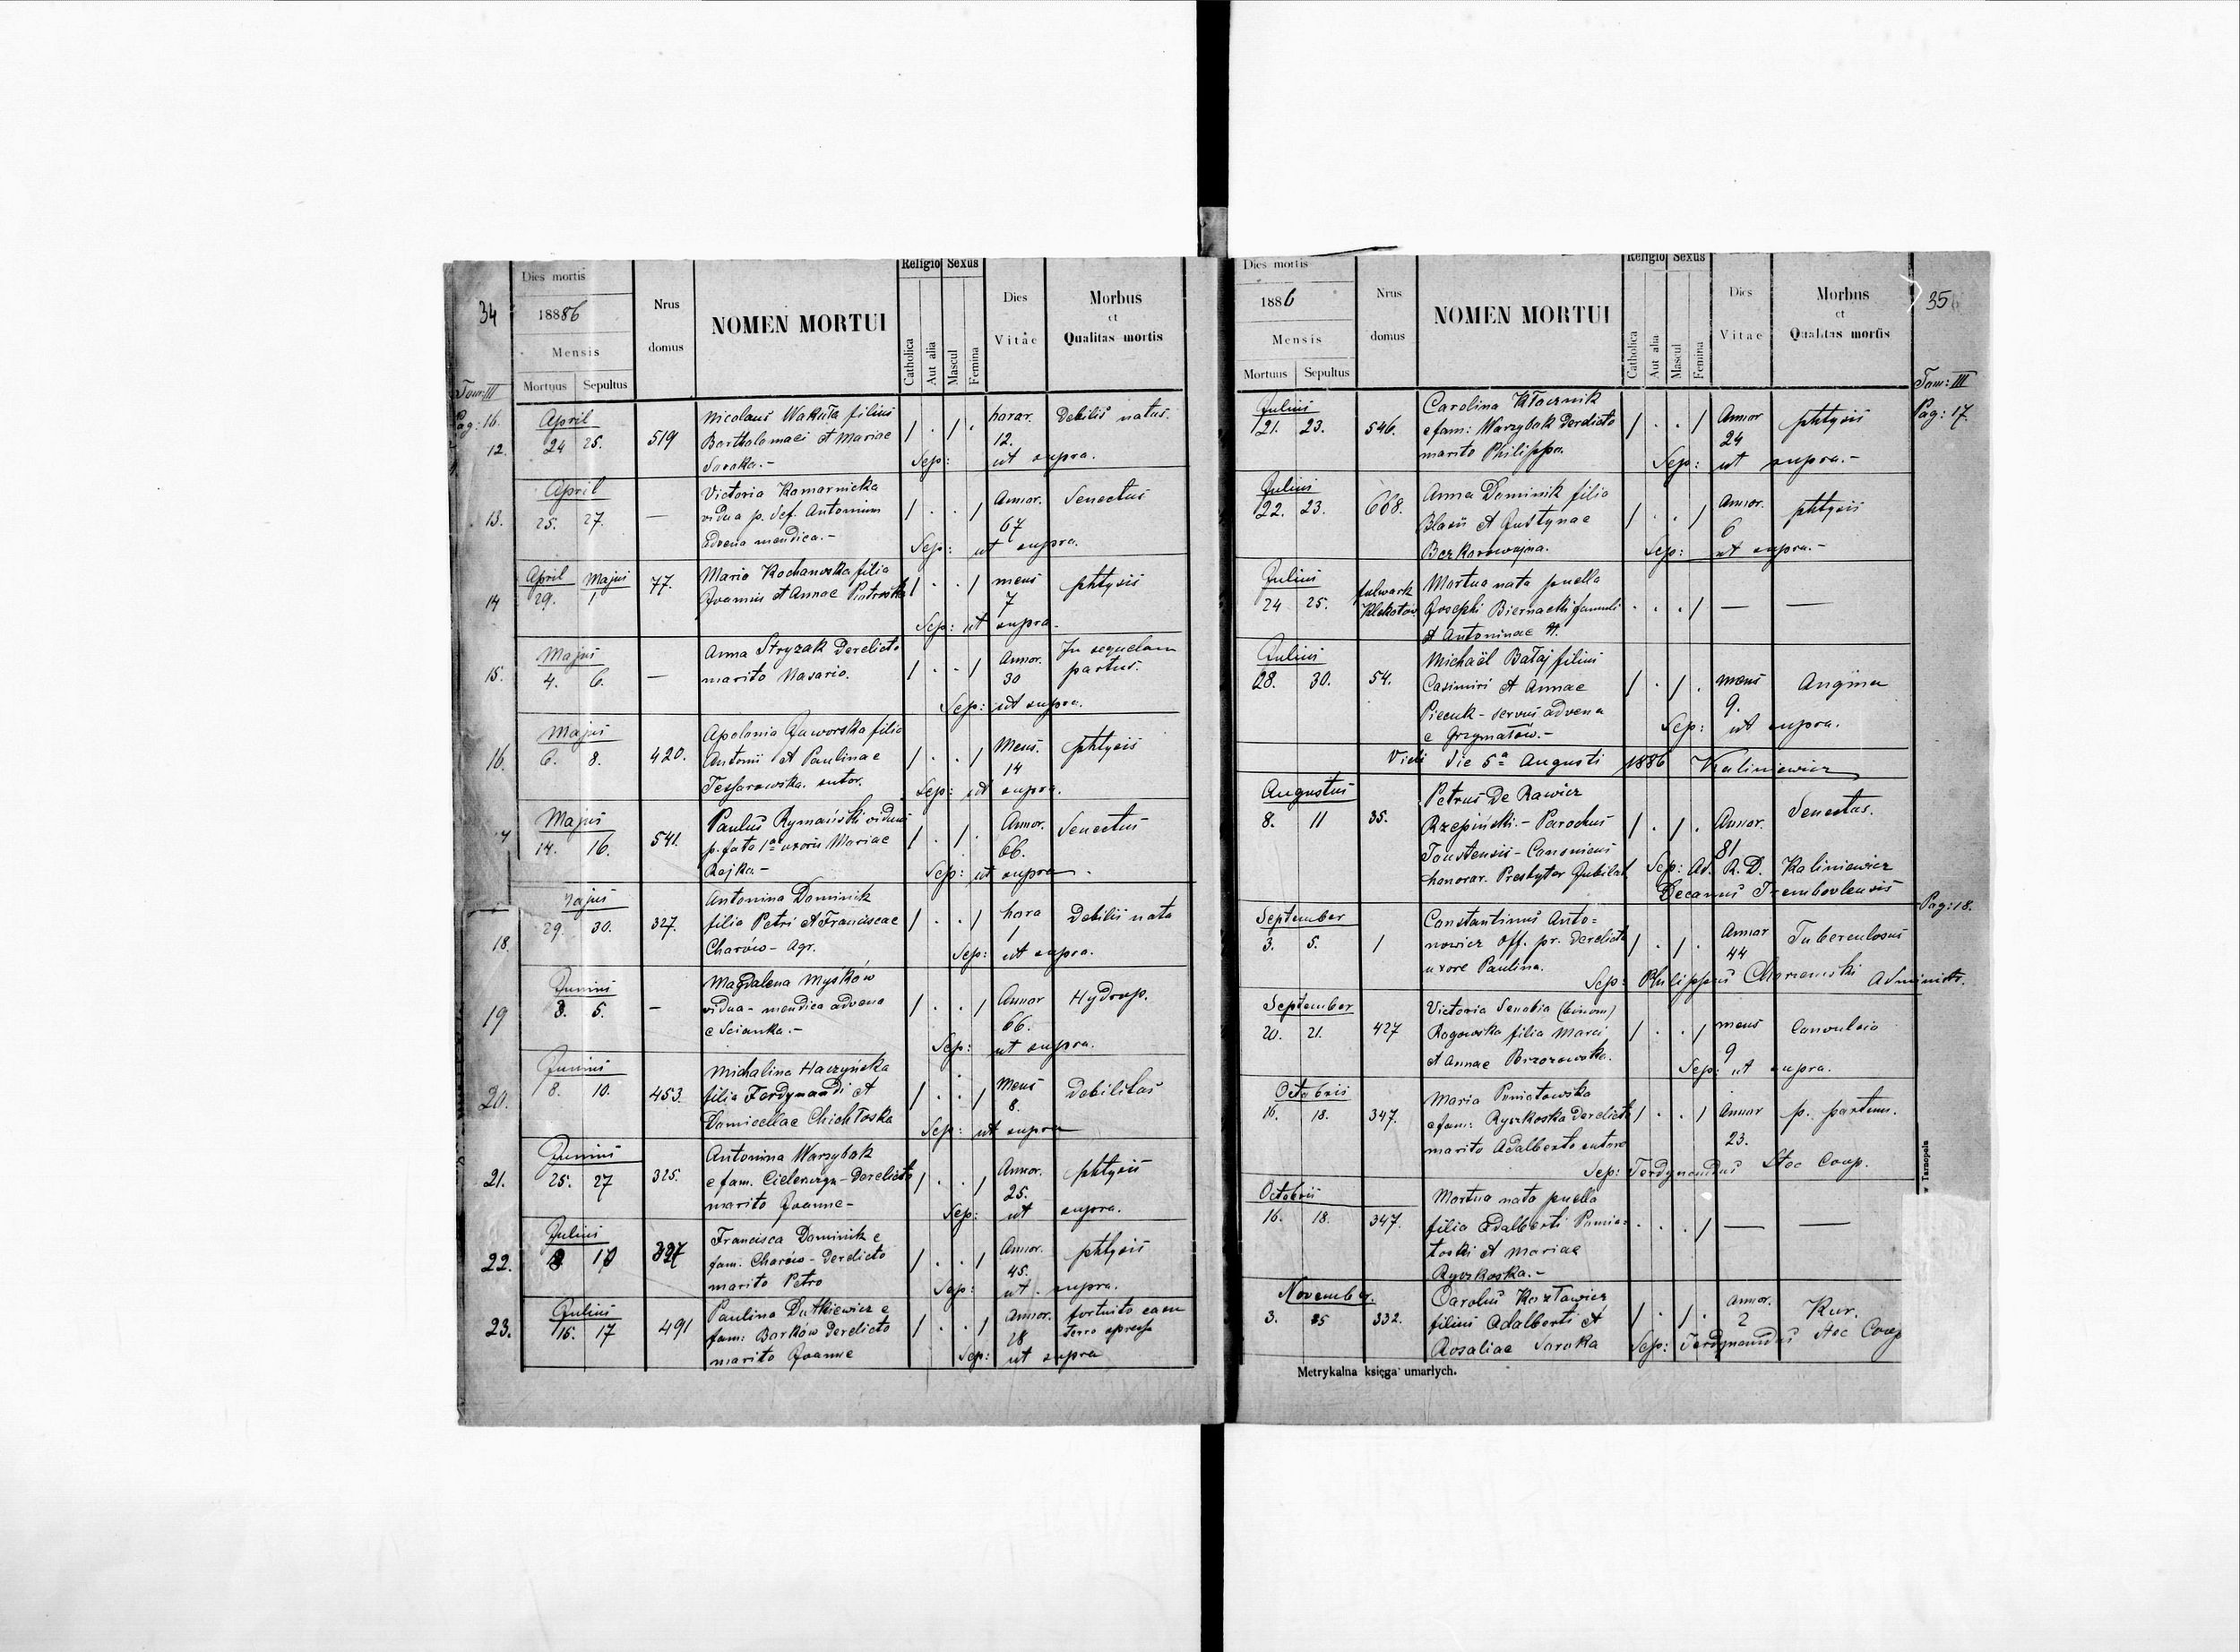 34
Dies mortis
18886
Mensis
Mortuus Sepultus
Nrus
domus
NOMEN MORTUI
Religio Sexus
Catholica
Aut alia
Mascul
Femina
Dies
Vitae
Morbus
et
Qualitas mortis
Tom: III
Pag: 16.
12.
April
24 25.
519
Nicolaus Wakuła filius
Bartholomaei et Mariae
Soroka.-
horar.
12.
Debilis natus.
Sep: ut supra.
13.
April
25. 27.
—
Victoria Komarnicka
vidua p. def. Antonium
advena mendica.-
Annor.
67
Senectus
Sep: ut supra.
14
April Majus
29. 1
77.
Maria Kochanoska filia
Joannis et Annae
mens
7
phtysis
Sep: ut supra.
15.
Majus
4. 6.
—
Anna Stryzak derelicto
marito Nasario.
Annor.
30
In sequelam
partus.
Sep: ut supra.
16.
Majus
6. 8.
420.
Apolonia Jaworska filia
Antonii et Paulinae
Tessarowska. sutor.
Mens.
14
phtysis
Sep: ut supra.
Majus
14. 16.
541.
Paulus Rymański viduus
p. fata 1ae uxoris Mariae
Rejka-
Annor.
66.
Senectus
Sep: ut supra.
18.
Majus
29. 30.
327.
Antonina Dominik
filia Petri et Franciscae
Charów - Agr.
hora
1
Debilis nata
Sep: ut supra.
19
Junius
3. 5.
—
Magdalena Myśków
vidua - mendica advena
e Scianka.-
Annor
66.
Hydrop.
Sep: ut supra.
20.
Junius
8. 10.
453.
Michalina Haczyńska
filia Ferdynandi et
Domicellae Chichłoska
Mens
8.
Debilitas
Sep: ut supra
21.
Junius
25. 27
325.
Antonina Warzybak
e fam. - Derelicto
marito Joanne-
Annor.
25.
phtysis
Sep: ut supra.
22.
Julius
327
Francisca Dominik e
fam. Charów - Derelicto
marito Petro
Annor.
45.
phtysis
Sep: ut supra.
23.
Julius
15. 17
491
Paulina Dutkiewicz e
fam: Borków Derelicto
marito Joanne
Annor.
28
fortuito casu
terra opressa
Sep: ut supra
Dies mortis
1886
Mensis
Mortuus Sepultus
Nrus
domus
NOMEN MORTUI
Religio Sexus
Catholica
Aut alia
Mascul
Femina
Dies
Vitae
Morbus
et
Qualitas mortis
35
Tom: III
Pag: 17.
Julius
21. 23.
546.
Carolina Kłocznik
e fam: Warzybok Derelicto
marito Philippo.
Annor
24
phtysis
Sep: ut supra.-
Julius
22. 23.
668.
Anna Dominik filia
Blasii et Justynae
Bezkorowajna.
Annor.
6
phtysis
Sep: ut supra.-
Julius
24 25.
fulwark
Klekotow
Mortua nata puella
Josephi Biernacki famuli
et Antoninae
— —
Julius
28. 30.
54.
Michaël Bałaj filius
Casimiri et Annae
Piecuk - servus advena
e Grzymałów.-
mens
9.
Angina
Sep: ut supra.
Vidi die 5a Augusti 1886 Kaliniewicz
Augustus
8. 11
35.
Petrus De Rawicz
Rzepiński.- Parochus
Toustensis - Canonicus
honorar. Presbyter Jubilat
Annor.
81
Senectus.
Sep: Ad. R. D. Kaliniewicz
Decanus Trembovlensis
Pag: 18.
September
3. 5.
1
Constantinus Anto=
nowicz off. pr. derelicta
uxore Paulina.
Annor
44
Tuberculosus
Sep: Philippus Administr.
September
20. 21.
427
Victoria Senobia (binom)
Rogowska filia Marci
et Annae Brzozowska.
mens
9
Convulsio
Sep: ut supra.
Octobris
16. 18.
347.
Maria Poniatowska
e fam: Ryszkoska derelicto
marito Adalberto sutore
Annor
23.
p. partum.
Sep: Ferdynandus Stec Coop.
Octobris
16. 18.
347.
Mortua nata puella
filia Adalberti Ponia=
toski et Mariae
Ryszkoska.-
— —
November.
3. 5
332.
Carolus Kozłowicz
filius Adalberti et
Rosaliae Soroka
Annor.
2
Kur.
Sep: Ferdynandus Stec Coop
w Tarnopolu
Metrykalna księga umarłych.